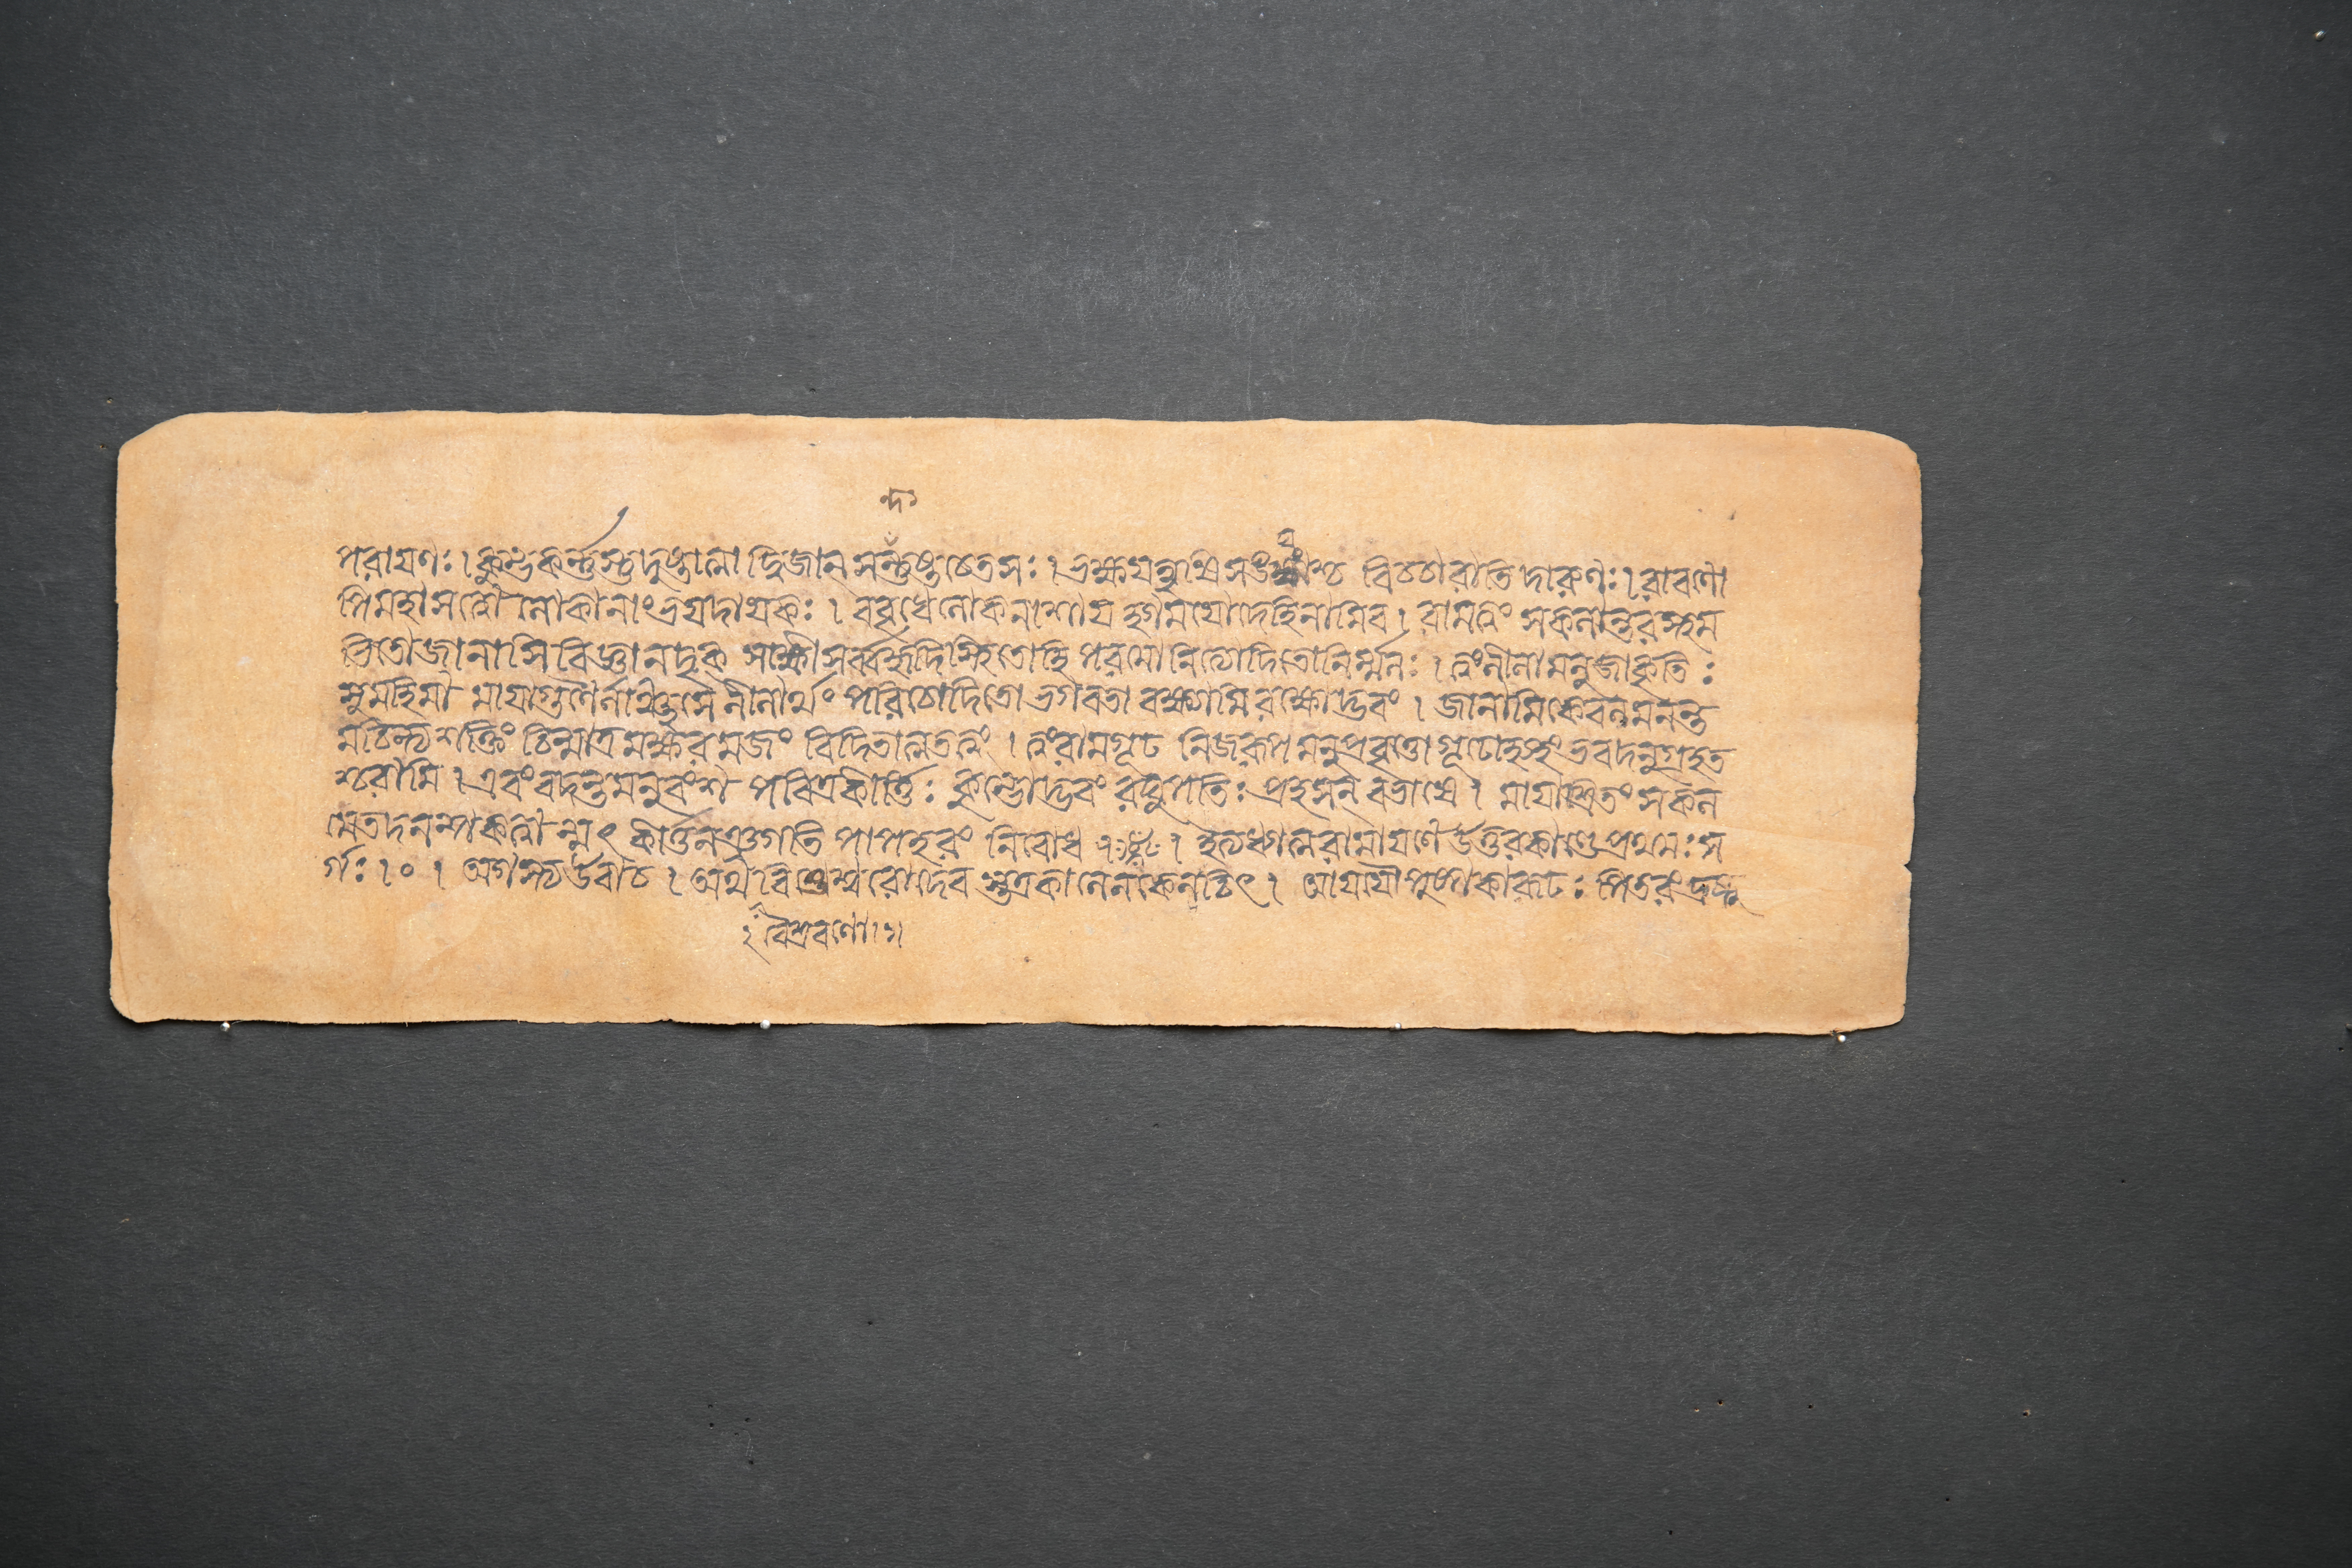 ন্দ
পরাযণঃ। কুম্ভকর্ন্নস্তু দুষ্টাত্মা দ্বিজান সন্তুষ্ট চেতসঃ। ভক্ষযন্নৃষি সঙ্ঘাংশ্চ বিচচারাতি দারুণঃ। রাবণো
পি মহাসত্বো লোকানাং ভযদাযকঃ। ববৃধে লোকনাশায হ্যামযো দেহিনামিব। রাম ত্বং সকলান্তরস্থম
ভিতো জানাসি বিজ্ঞানদৃক্ সাক্ষী সর্ব্বহৃদিস্থিতো হি পরমো নিত্যোদিতো নির্ম্মলঃ। ত্বং লীলামনুজাকৃতিঃ
স্বমহিমা মাযাগুণৈর্নাজ্যসে লীলার্থং পরিচোদিতো ভগবতা বক্ষ্যামি রক্ষোদ্ভবং। জানামি কেবলমনন্ত
মচিন্ত্যশক্তিং চিন্মাত্রমক্ষরমজং বিদিতাত্মতত্বং। ত্বাং রাম গূঢ নিজরূপমনুপ্রবৃত্তো মূঢোহপ্যহং ভবদনুগ্রহত
শ্চরামি। এবং বদন্তমনুবংশ পবিত্রকীর্ত্তিঃ কুম্ভোদ্ভবং রঘুপতিঃ প্রহসন বভাষে। মাযাশ্রিতং সকল
মেতদনন্যকত্বান্মৎ কীর্ত্তনঞ্জগতি পাপহরং নিবোধ। ইত্যধ্যাত্মরামাযণে উত্তরকাণ্ডে প্রথমঃ স
র্গঃ।০। অগস্ত্য উবাচ। অথ বিত্তেশ্বরো দেব স্তত্র কালেন কেনচিৎ। আযযৌ পুষ্পকারূঢঃ পিতরং দ্রষ্টু
বৈশ্রবণো।১।